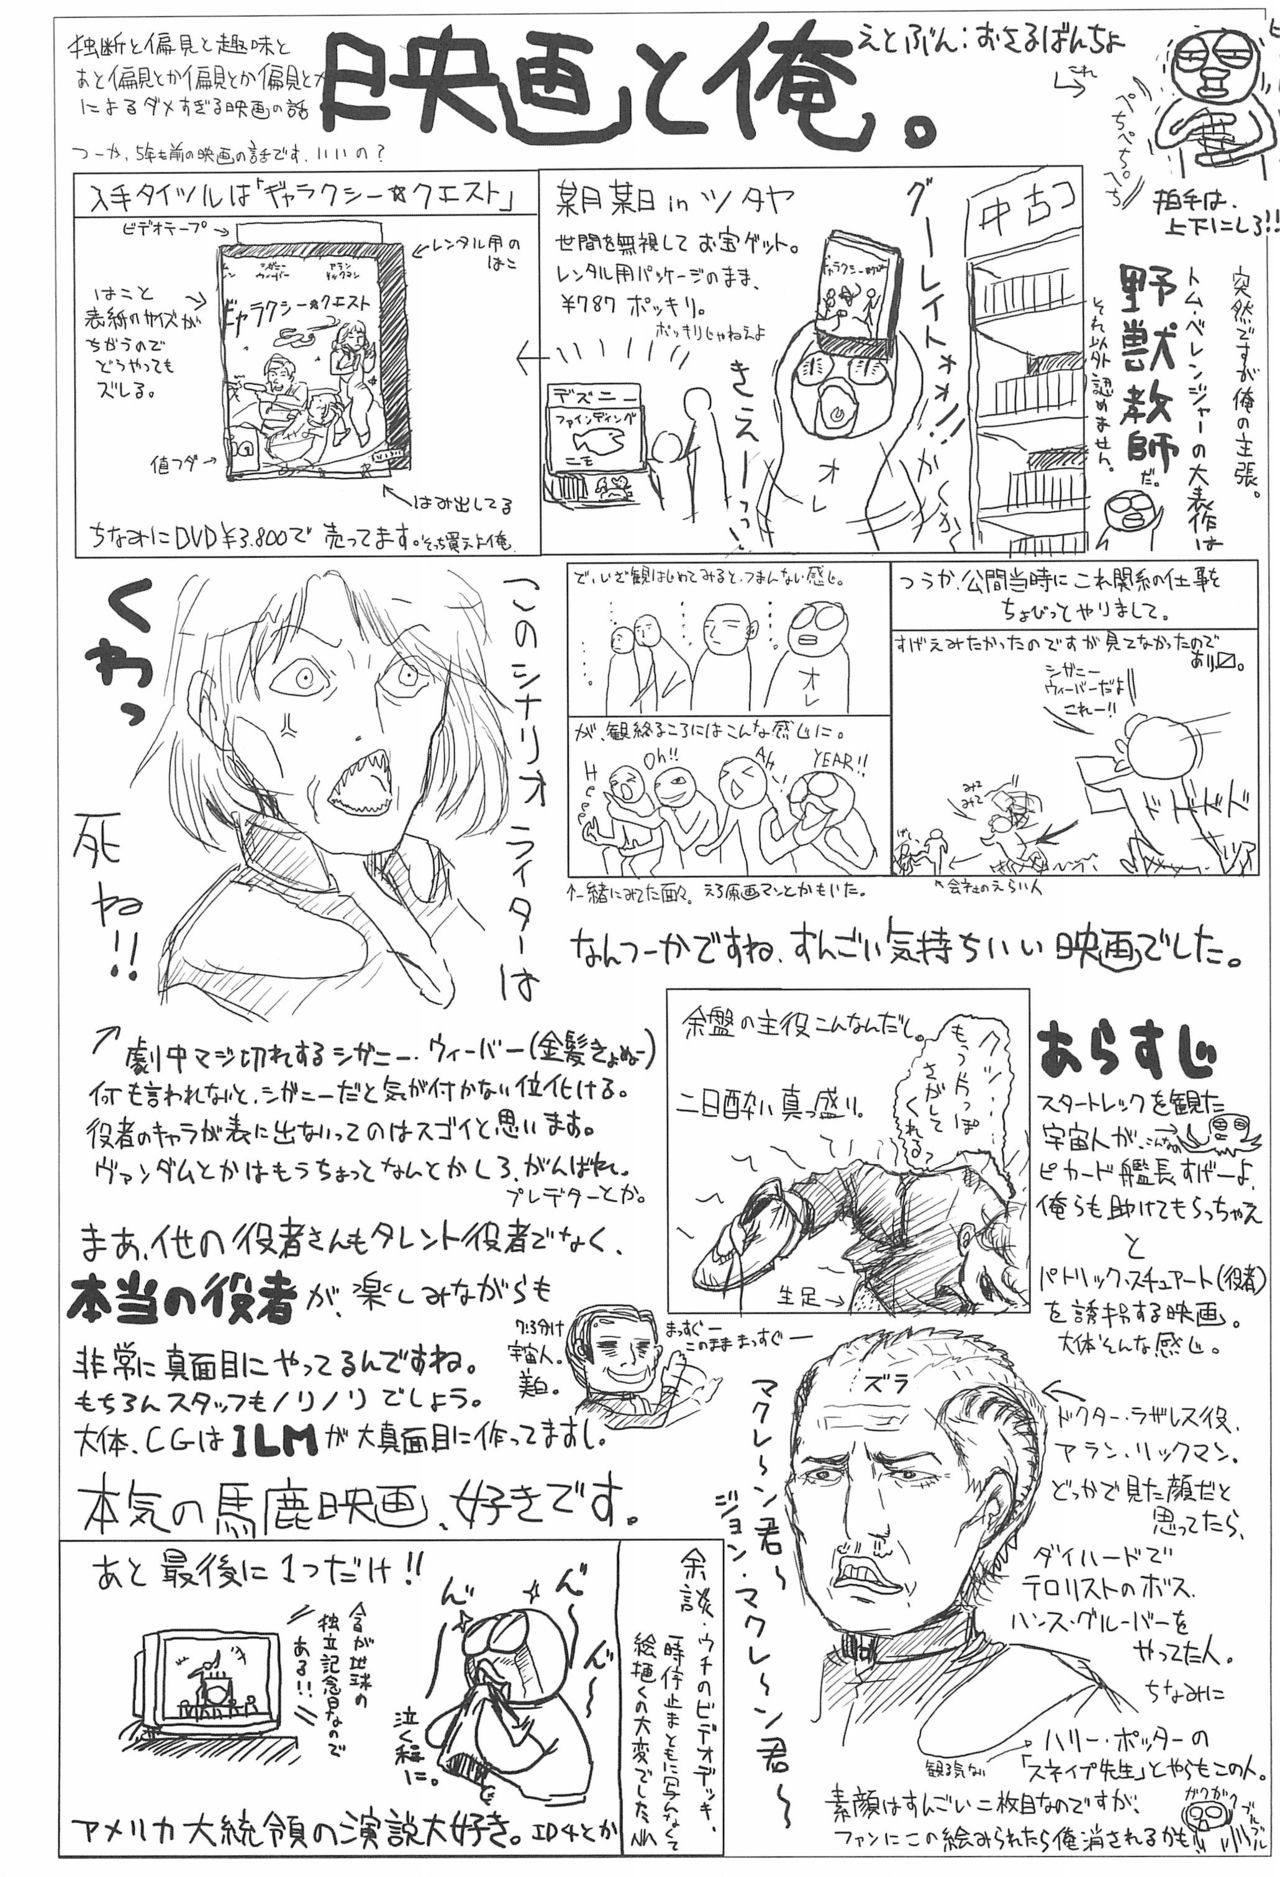 独断と偏見と趣味と
あと偏見とか偏見とか偏見とか
によるダメすぎる映画の話
つーか、5年も前の映画の話です、いいの？
映画と俺。
えとぶん：おさるばんちょ
これ
ぺちぺちぺち
拍手は、
上下にしろ!!
入手タイツルは「ギャラクシー☆クエスト」
ビデオテープ
レンタル用の
はこ
はこと
表紙のサイズが
ちがうので
どうやっても
ズレる。
シガニー
ウィーバー
アラン
リックマン
ギャラクシー☆クエスト
値フダ
はみ出してる
ちなみにDVD¥3.800で売ってます。そっち買えよ俺
某月某日inツタヤ
世間を無視してお宝ゲット。
レンタル用パッケージのまま、
¥787ポッキリ。
ポッキリじゃねえよ
デズニー
ファインディング
ニモ
グーレイトォォ!!
きえーっっ!
がくがく
オレ
中古コ
突然ですが俺の主張。
トム・ベレンジャーの大表作は
野獣教師だ。
それ以外認めません。
くわっ
このシナリオライターは
死ね!!
で、いざ観はじめてみると、つまんない感じ。
オレ
が、観終るころにはこんな感じに。
H
Oh!!
AH
YEAR!!
↑一緒にみてた面々。えろ原画マンとかもいた。
つうか、公開当時にこれ関系の仕事を
ちょびっとやりまして。
すげえみたかったのですが見てなかったので
あり〼。
シガニー
ウィーバーだよ
これー!!
みて
みて
ドドドド
会社のえらい人
なんつーかですね、すんごい気持ちいい映画でした。
劇中マジ切れするシガニー・ウィーバー(金髪きょぬー)
何も言われないと、シガニーだと気が付かない位化ける。
役者のキャラが表に出ないってのはスゴイと思います。
ヴァンダムとかはもうちょっとなんとかしろ、がんばれ。
プレデターとか。
まあ、他の役者さんもタレント役者でなく、
本当の役者が、楽しみながらも
非常に真面目にやってるんですね。
もちろんスタッフもノリノリでしょう。
大体、CGはILMが大真面目に作ってますし。
本気の馬鹿映画、好きです。
7:3分け
宇宙人。
美白。
まっすぐー
このまままっすぐー
余盤の主役こんなんだし。
二日酔い真っ盛り。
生足
あらすじ
スタートレックを観た
宇宙人が、こんなの
ピカード艦長すげーよ、
俺らも助けてもらっちゃえ
と
パトリック・スチュアート(役者)
を誘拐する映画。
大体そんな感じ。
ズラ
マクレ〜ン君〜
ジョン・マクレ〜ン君〜
ドクター・ラザレス役、
アラン・リックマン。
どっかで見た顔だと
思ってたら、
ダイハードで
テロリストのボス、
ハンス・グルーバーを
やってた人。
ちなみに
ハリー・ポッターの
「スネイプ先生」とやらもこの人。
観る気ない
素顔はすんごい二枚目なのですが、
ファンにこの絵みられたら俺消されるかも
ガクガク
ブルブル
あと最後に1つだけ!!
今日が地球の
独立記念日なので
ある!!
んぐ〜
泣く程に。
アメリカ大統領の演説大好き。ID4とか
余談・ウチのビデオデッキ、
一時停止まともに写んなくて
絵描くの大変でした。